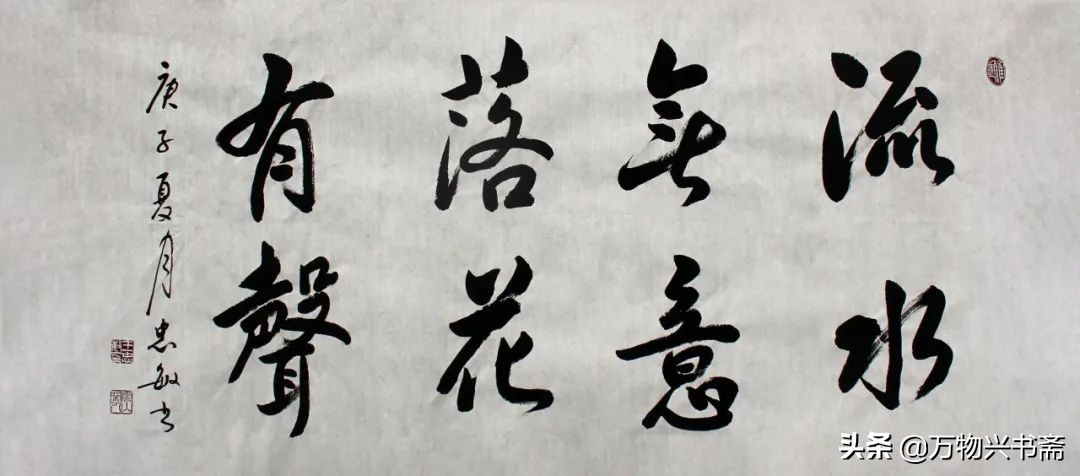 流水
無意
落花
有聲
庚子夏月忠敏书
头条 @万物兴书斋